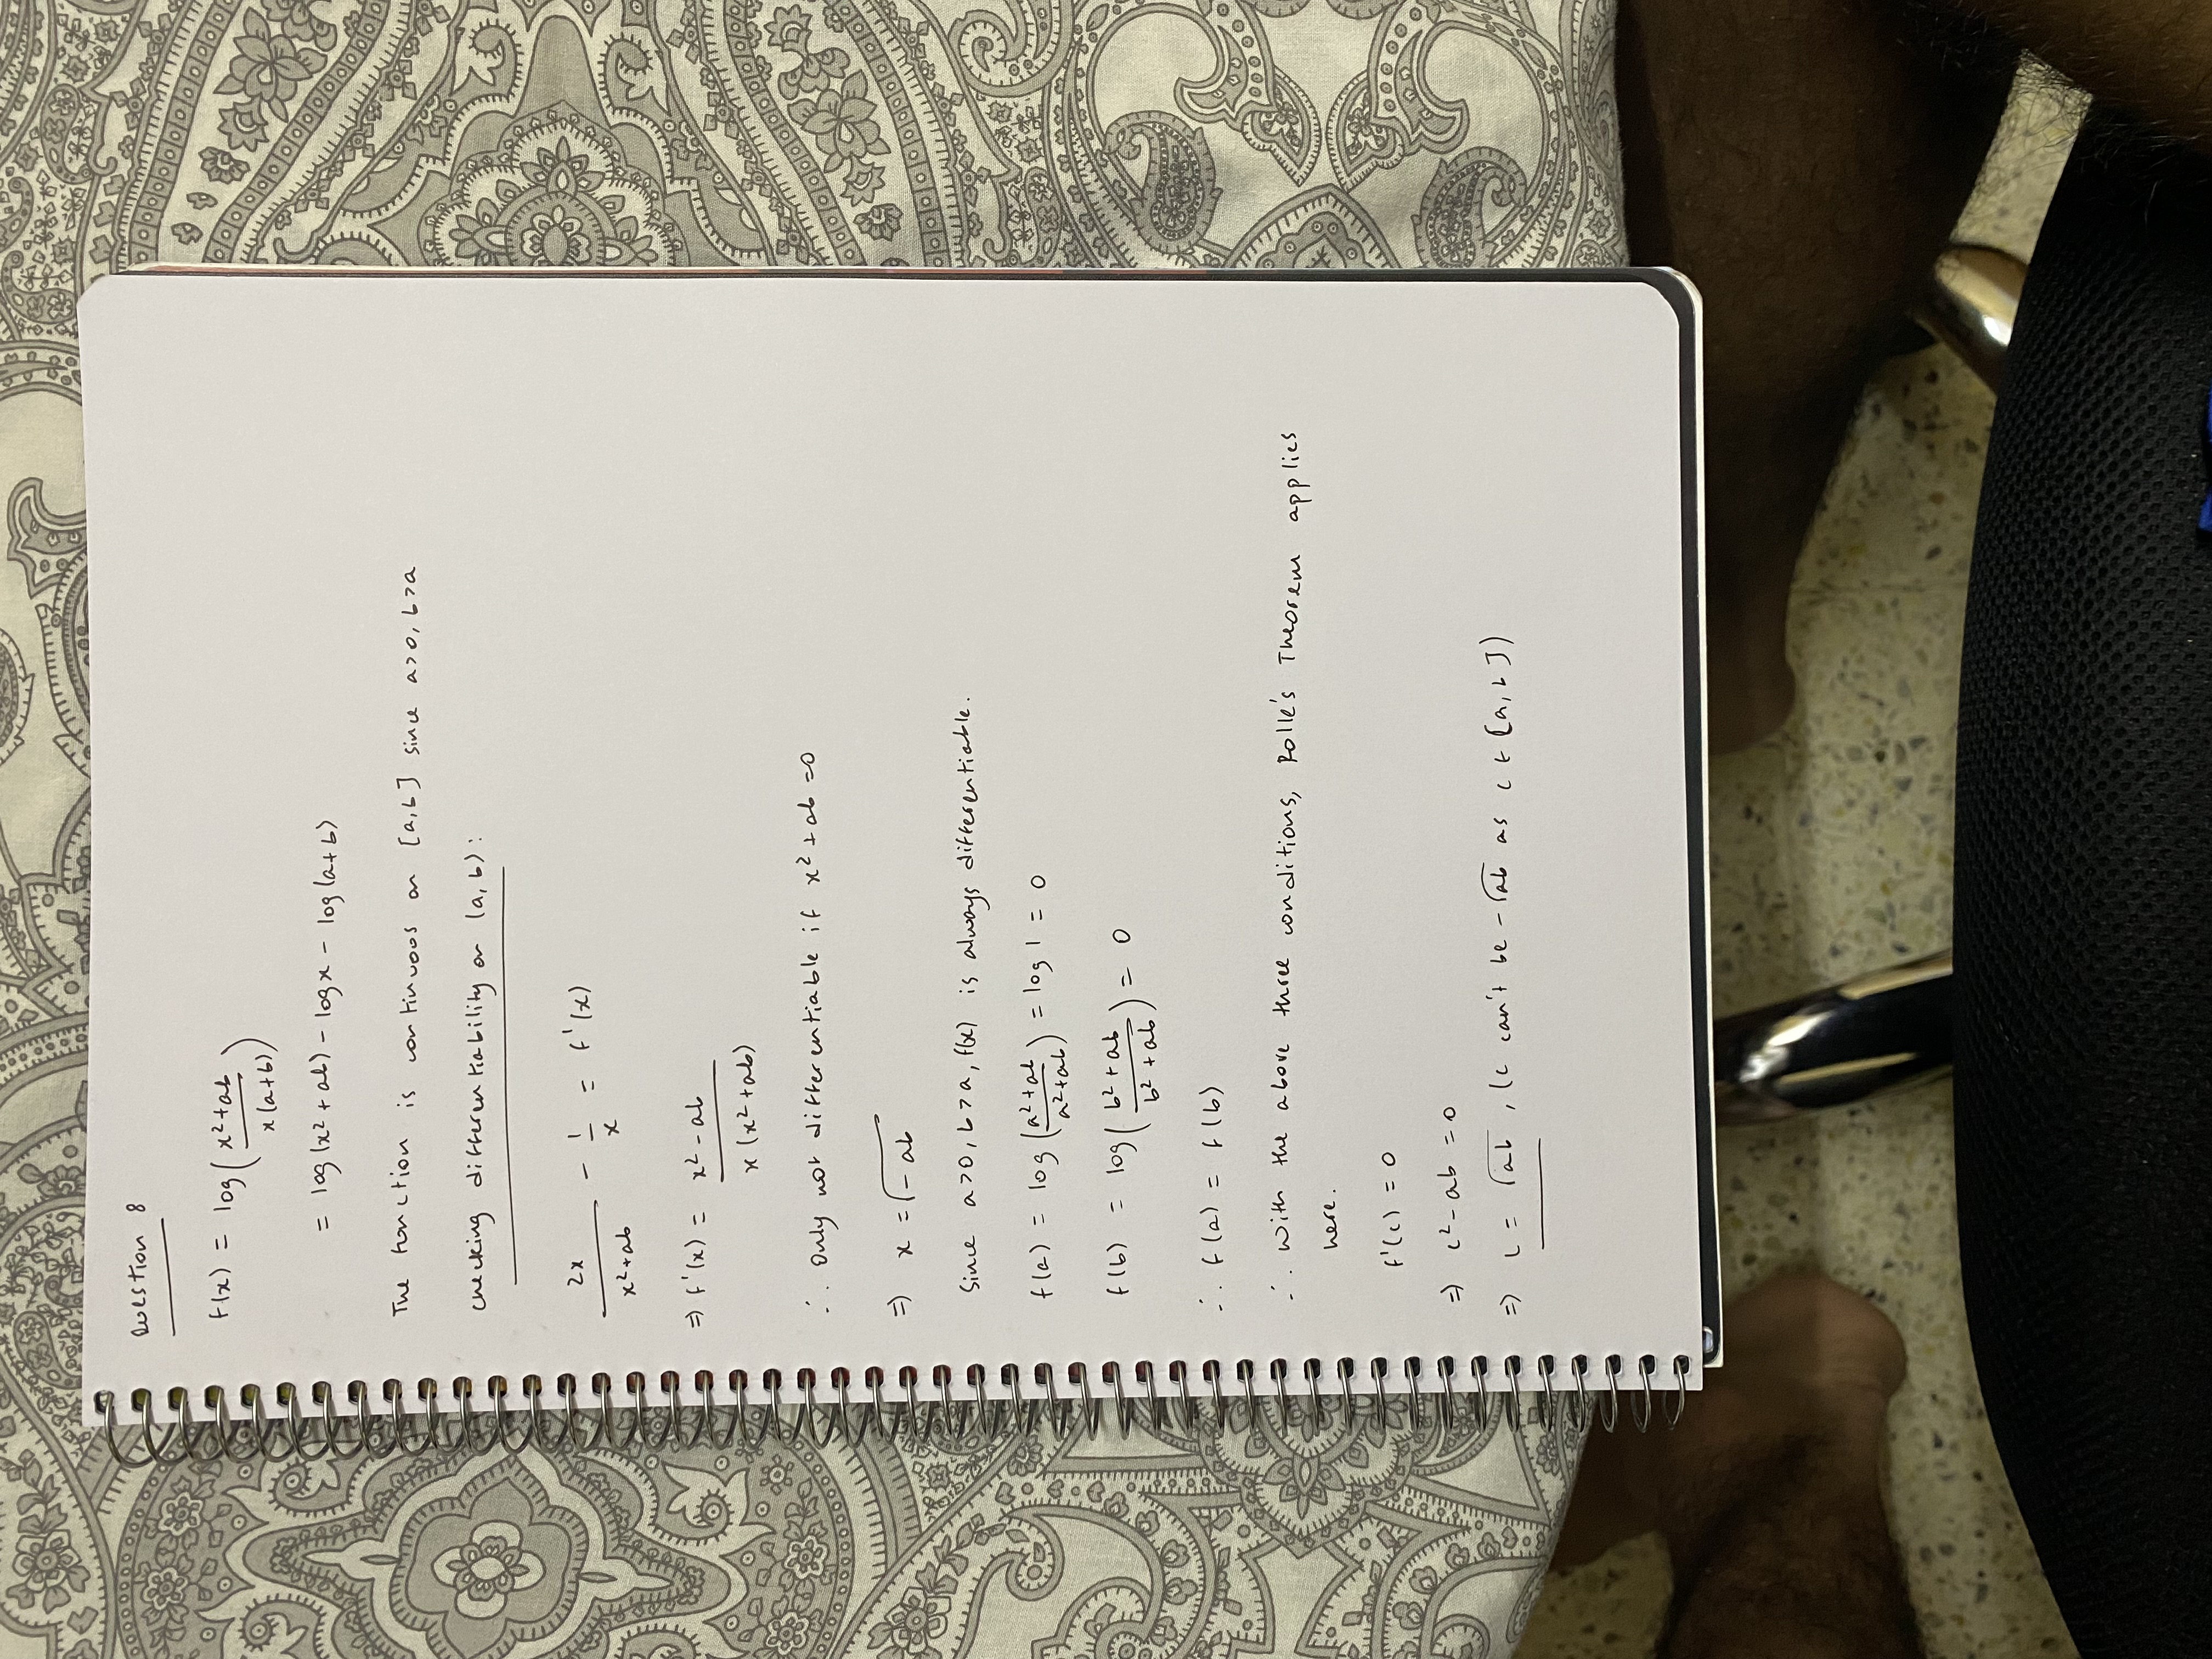 Question 8
f(x) = log( (x² + ab) / (x(a+b)) )
= log(x² + ab) - log x - log(a+b)
The function is continuous on [a,b] since a>0, b>a
checking differentiability on (a, b):
2x / (x² + ab) - 1/x = f'(x)
⇒ f'(x) = (x² - ab) / (x(x² + ab))
∴ Only not differentiable if x² + ab = 0
⇒ x = √(-ab)
Since a>0, b>a, f(x) is always differentiable.
f(a) = log( (a² + ab) / (a² + ab) ) = log 1 = 0
f(b) = log( (b² + ab) / (b² + ab) ) = 0
∴ f(a) = f(b)
∴ With the above three conditions, Rolle's Theorem applies
here.
f'(c) = 0
⇒ c² - ab = 0
⇒ c = √ab , (c can't be -√ab as c ∈ [a, b])